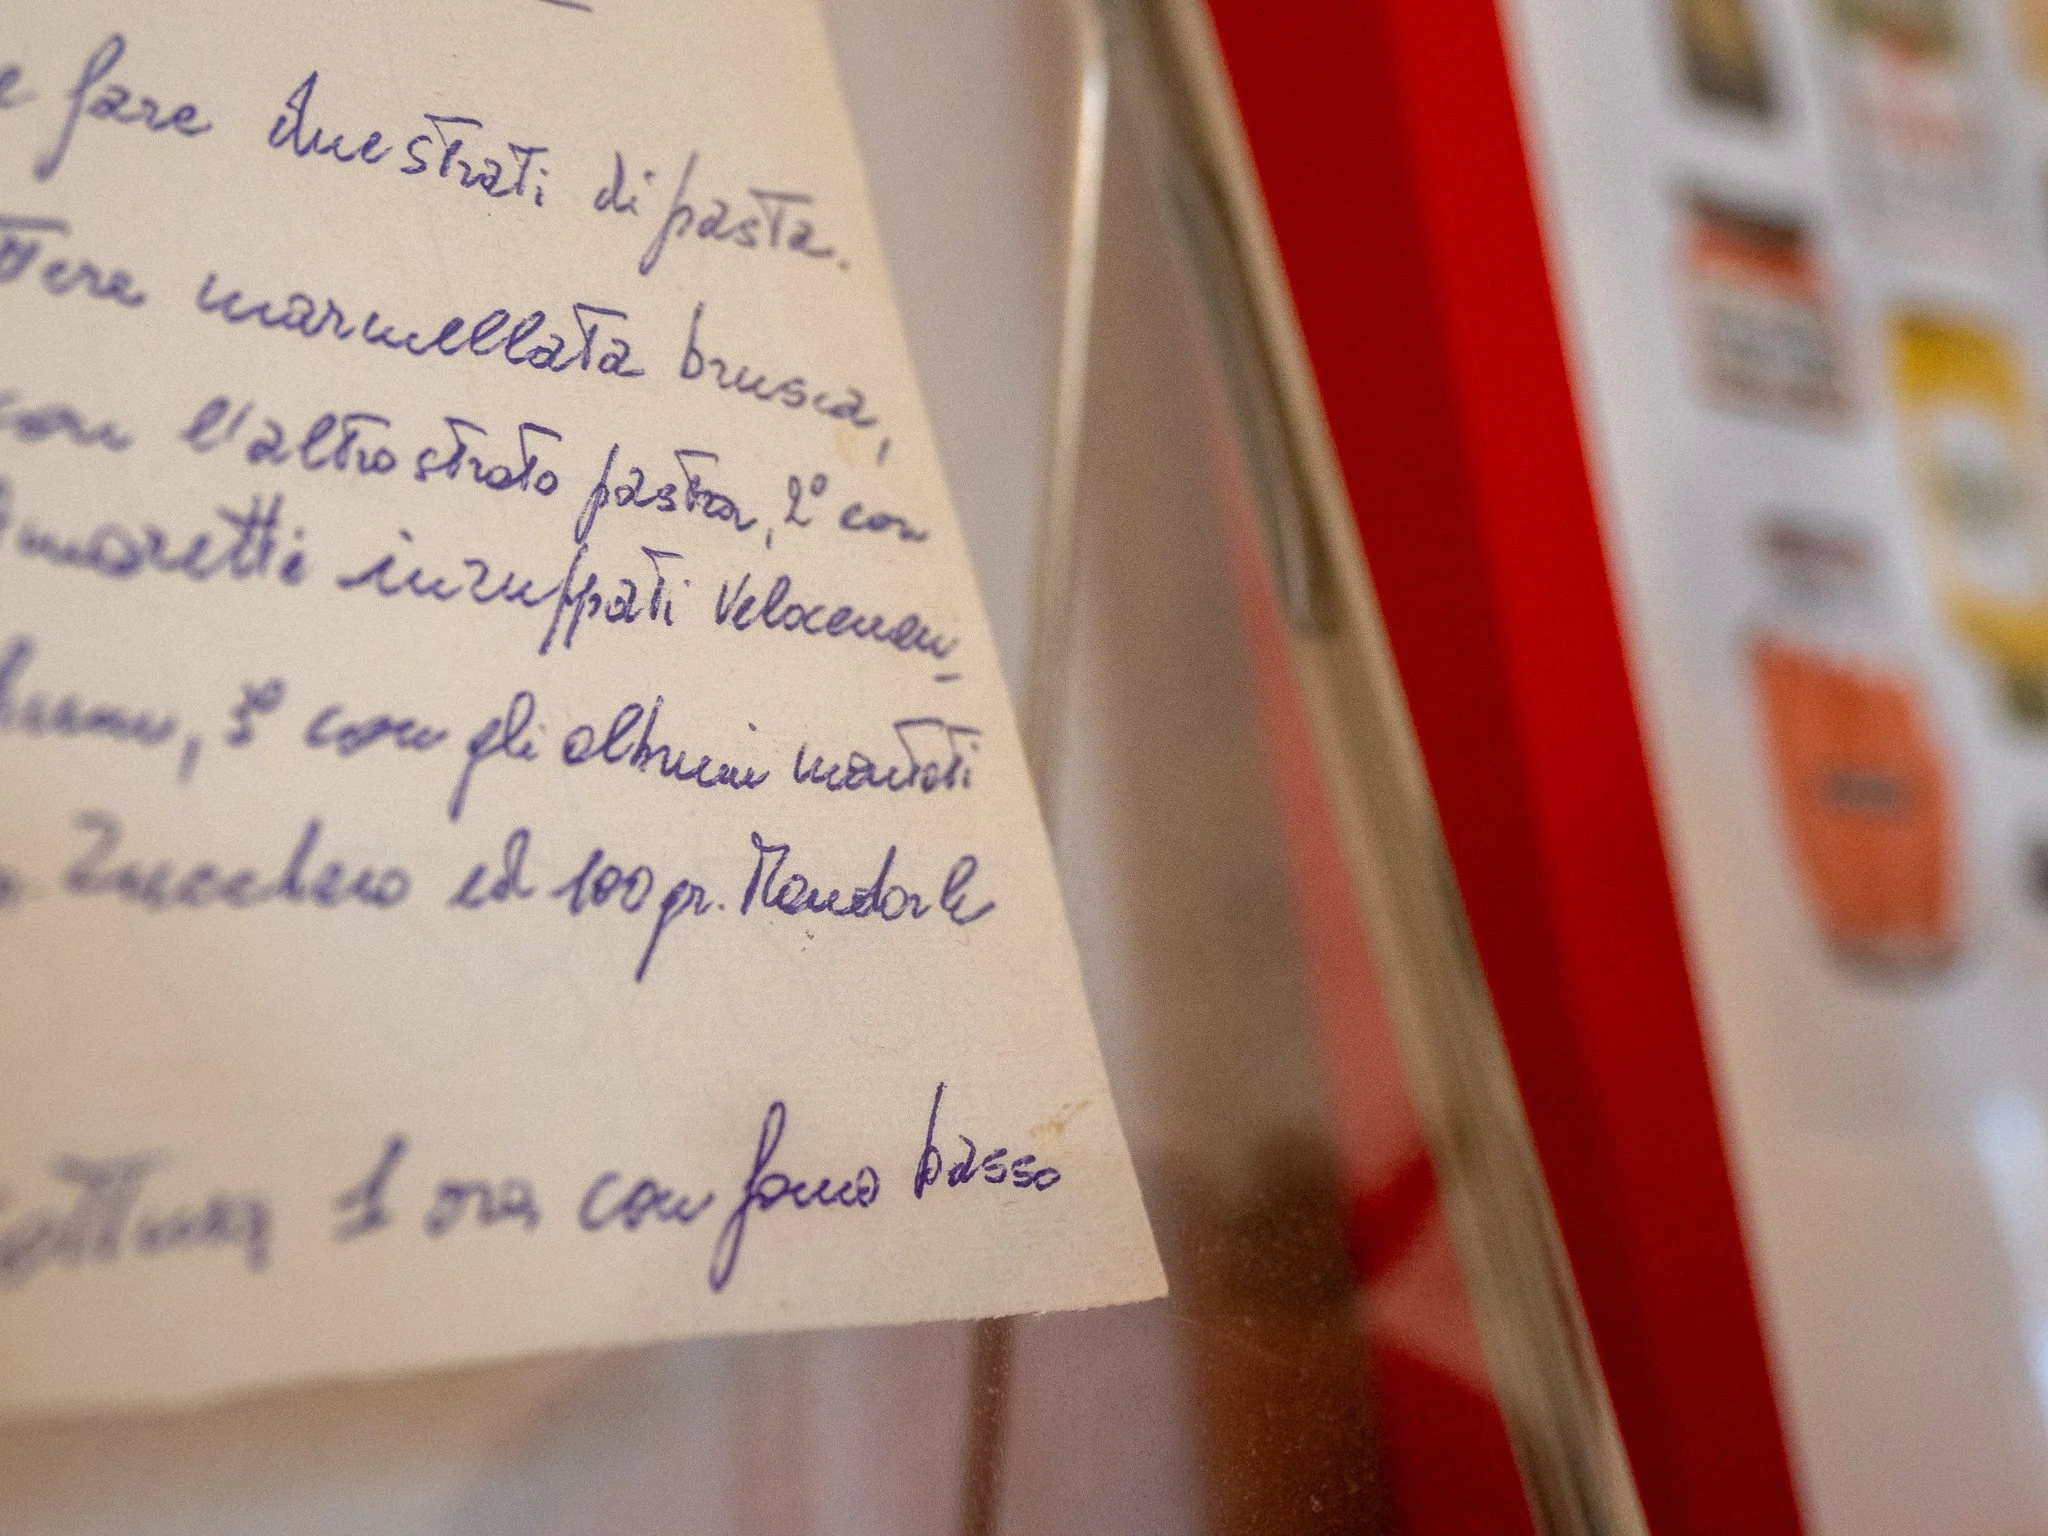 e fare due strati di pasta.
ttere marmellata brusca,
con l'altro strato pasta, 2° con
Amaretti inzuppati velocemen-
, 3° con gli albumi montati
Zucchero ed 100 gr. Mandorle
cottura 1 ora con forno basso